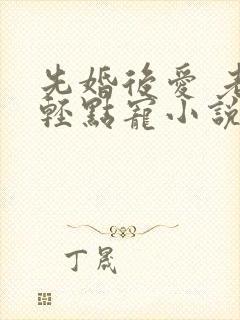 先婚後愛 老
輕點寵小說
丁晟